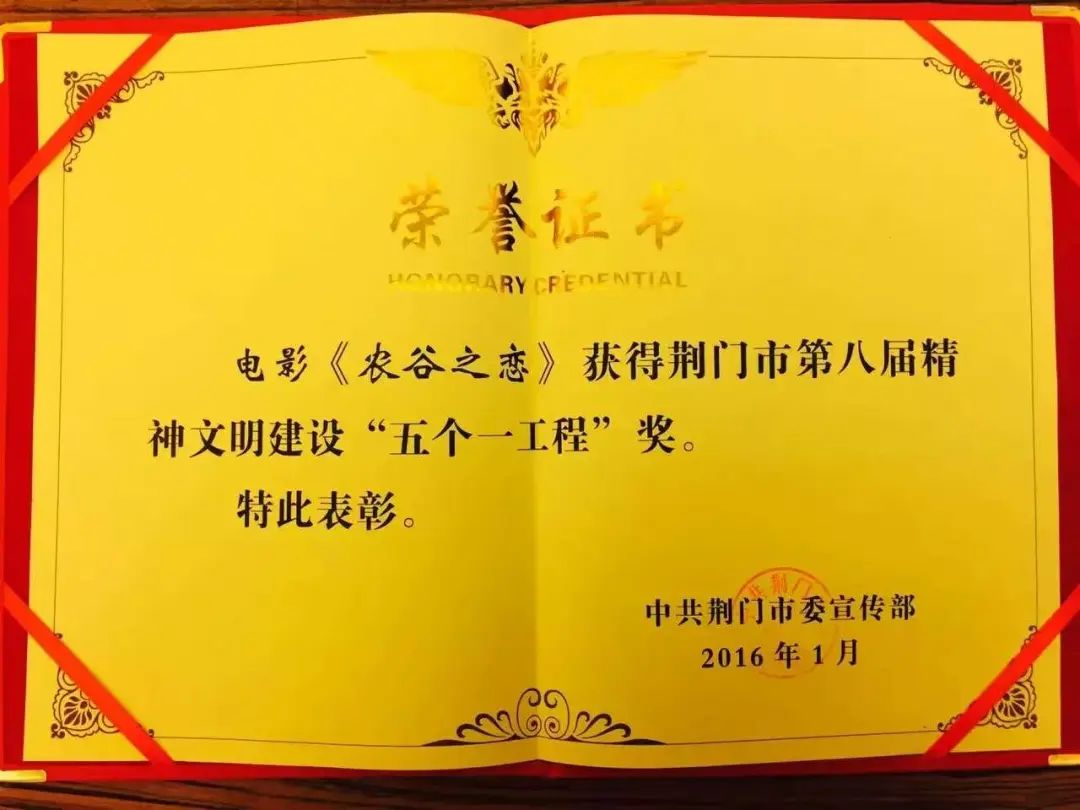 荣誉证书
HONORARY CREDENTIAL
电影《农谷之恋》获得荆门市第八届精
神文明建设“五个一工程”奖。
特此表彰。
中共荆门市委宣传部
2016年1月